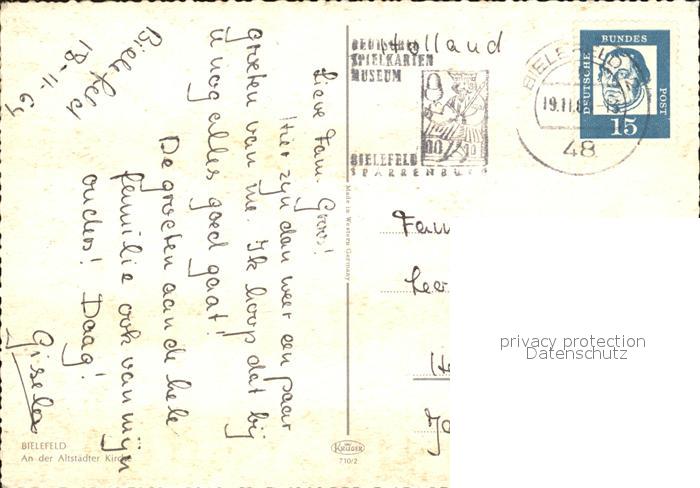 Bielefeld
18-11-64
Lieve Fam. Groos!
Hier zijn dan weer een paar
groeten van me. Ik hoop dat bij
u nog alles goed gaat!
De groeten aan de hele
familie ook van mijn
ouders! Daag!
Gisela
BIELEFELD
An der Altstädter Kirche
Made in Western Germany
KRÜGER
710/2
Holland
DEUTSCHES
SPIELKARTEN
MUSEUM
BIELEFELD
SPARRENBURG
BIELEFELD
19.11.
48
DEUTSCHE BUNDES POST
15
Fam
privacy protection
Datenschutz